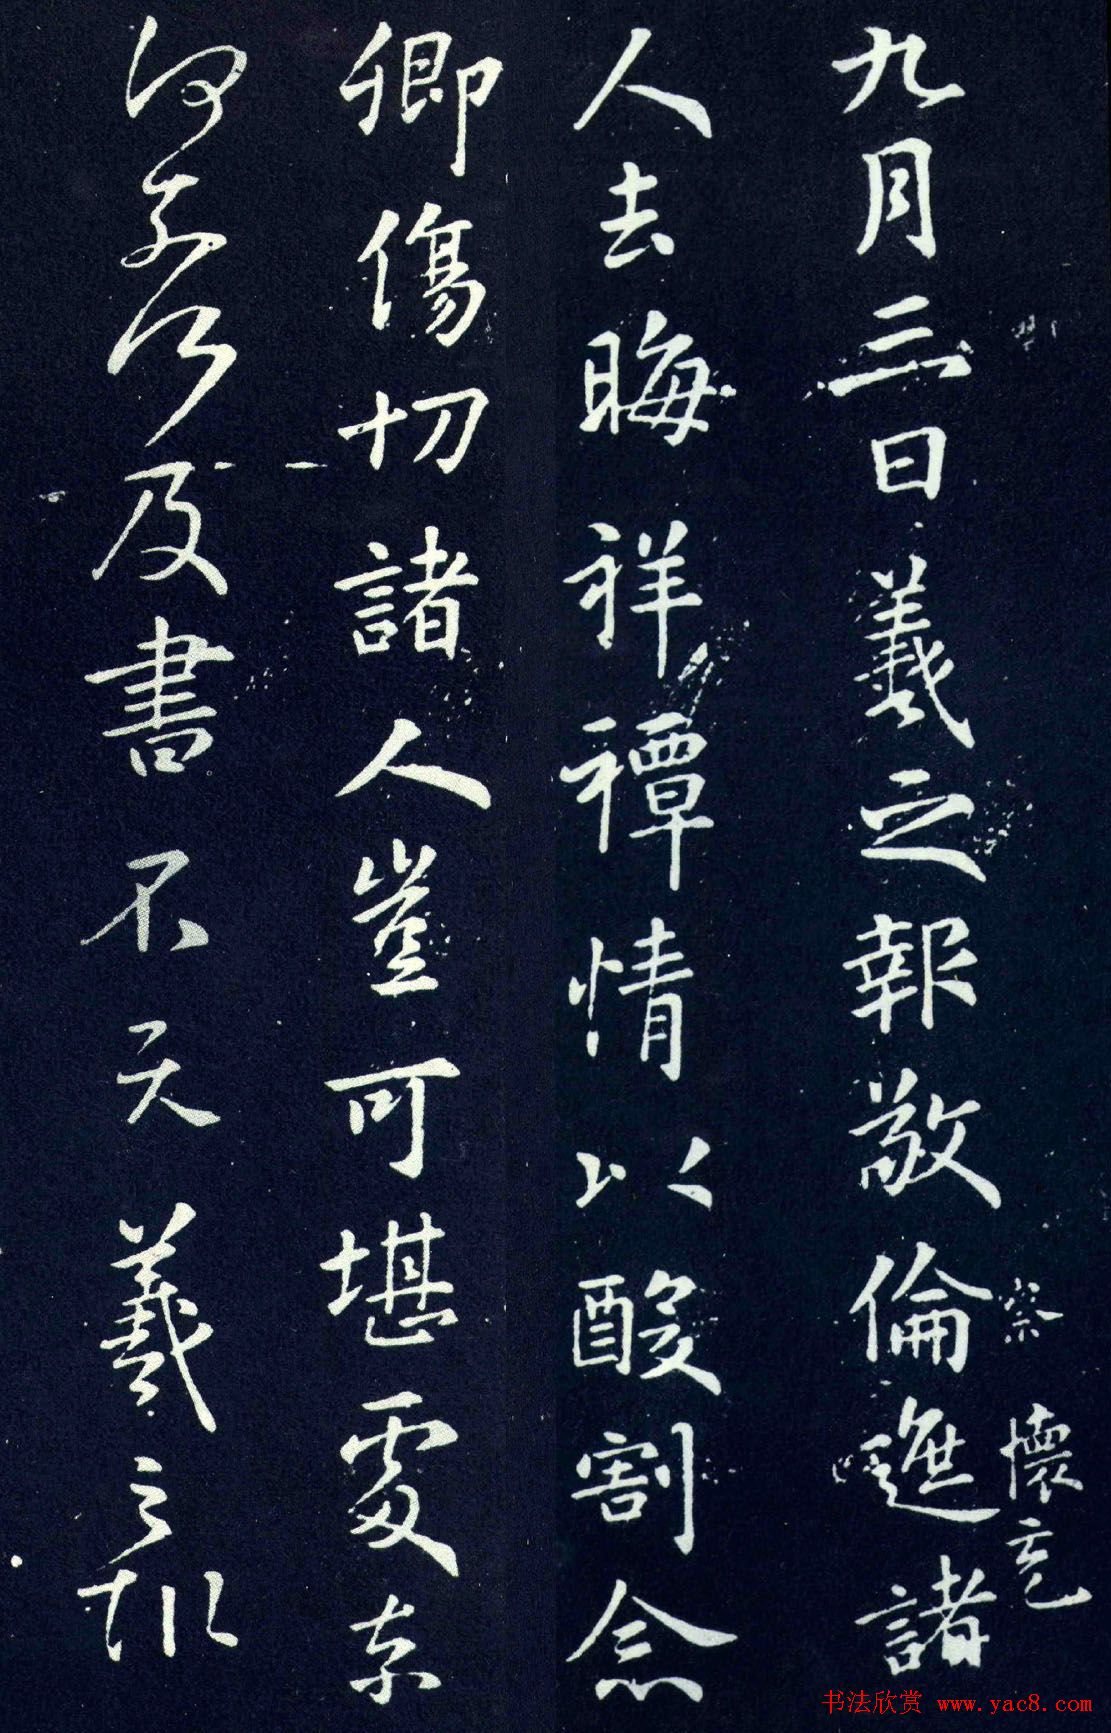 九月三日羲之報敬倫遮諸
察
懷充
人去晦祥禫情以酸割念
卿傷切諸人豈可堪處奈
何奈何及書不 羲之報
书法欣赏 www.yac8.com